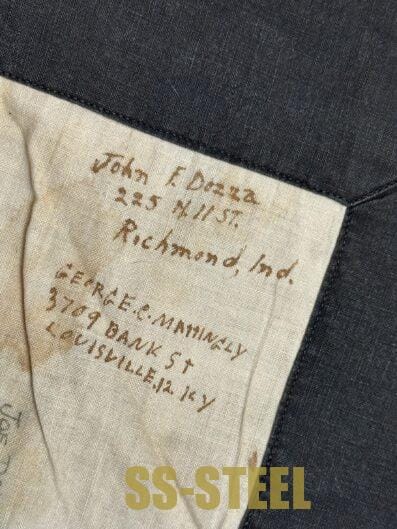 John F. Dozza
225 N. 11 ST.
Richmond, Ind.
GEORGE.C.MATTINGLY
3709 BANK St
LOUISVILLE.12 KY
JOE
SS-STEEL